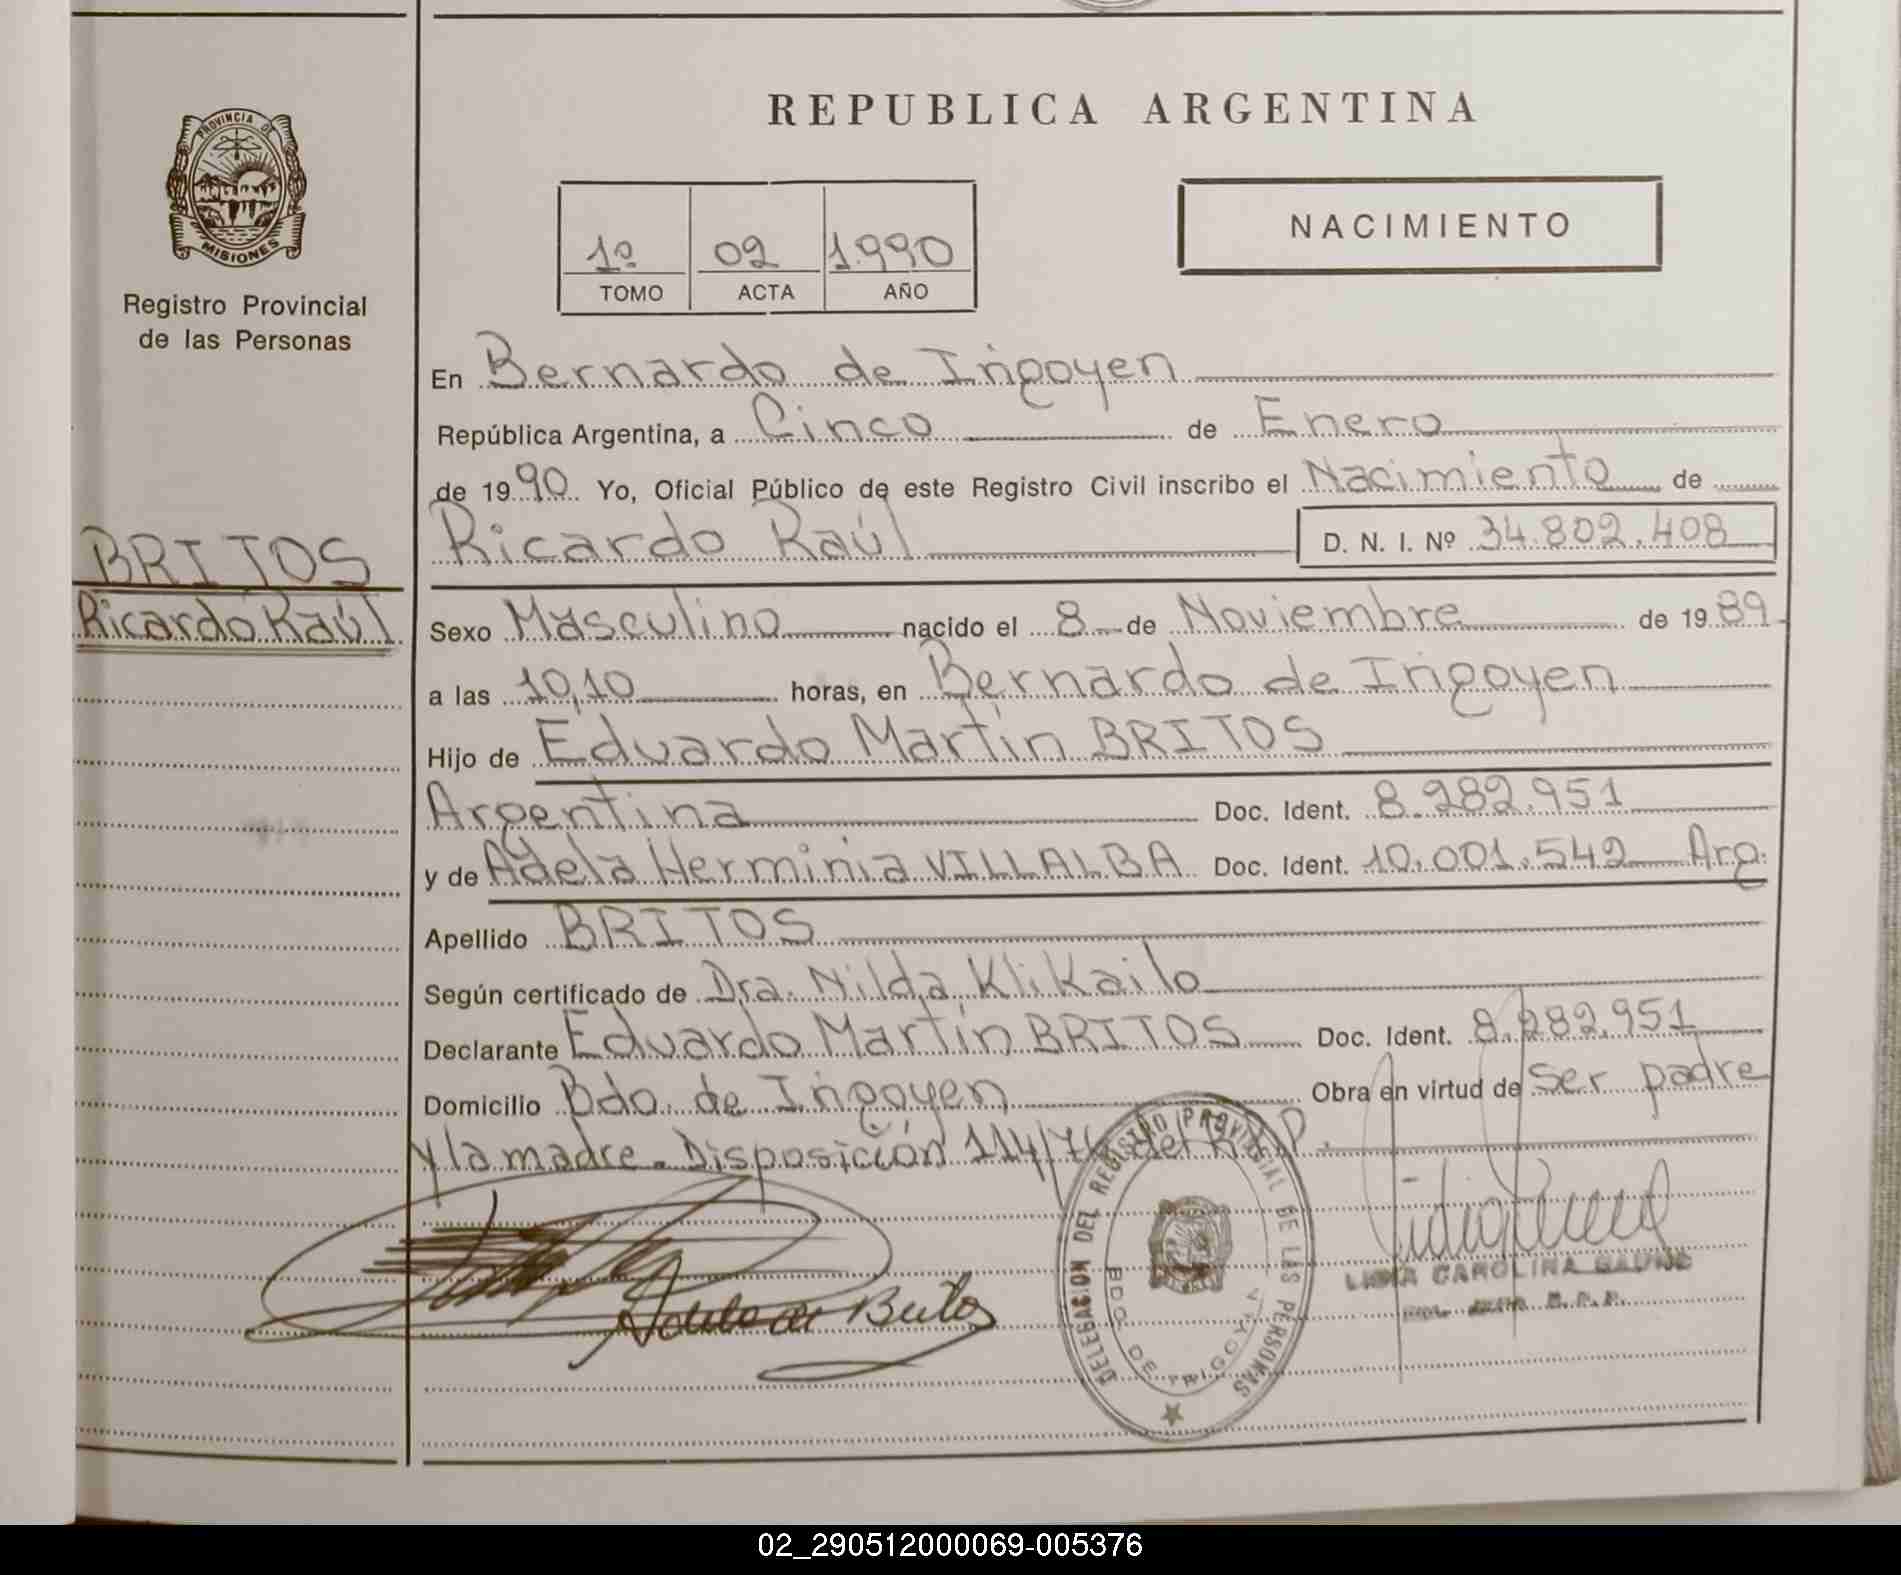 REPUBLICA ARGENTINA
PROVINCIA DE
MISIONES
Registro Provincial
de las Personas
1º 02 1990
TOMO ACTA AÑO
NACIMIENTO
En Bernardo de Irigoyen
República Argentina, a Cinco de Enero
de 1990 Yo, Oficial Público de este Registro Civil inscribo el Nacimiento de
Ricardo Raúl D. N. I. Nº 34.802.408
BRITOS
Ricardo Raúl
Sexo Masculino nacido el 8 de Noviembre de 1989
a las 10,10 horas, en Bernardo de Irigoyen
Hijo de Eduardo Martín BRITOS
Argentina Doc. Ident. 8.282.951
y de Adela Herminia VILLALBA Doc. Ident. 10.001.542 Arg.
Apellido BRITOS
Según certificado de Dra. Nilda Klikailo
Declarante Eduardo Martín BRITOS Doc. Ident. 8.282.951
Domicilio Bdo. de Irigoyen Obra en virtud de Ser padre
y la madre. Disposición 114/76 del R.P.P.
DELEGACION DEL REGISTRO PROVINCIAL DE LAS PERSONAS
BDO. DE IRIGOYEN
CAROLINA
Adela de Britos
02_290512000069-005376